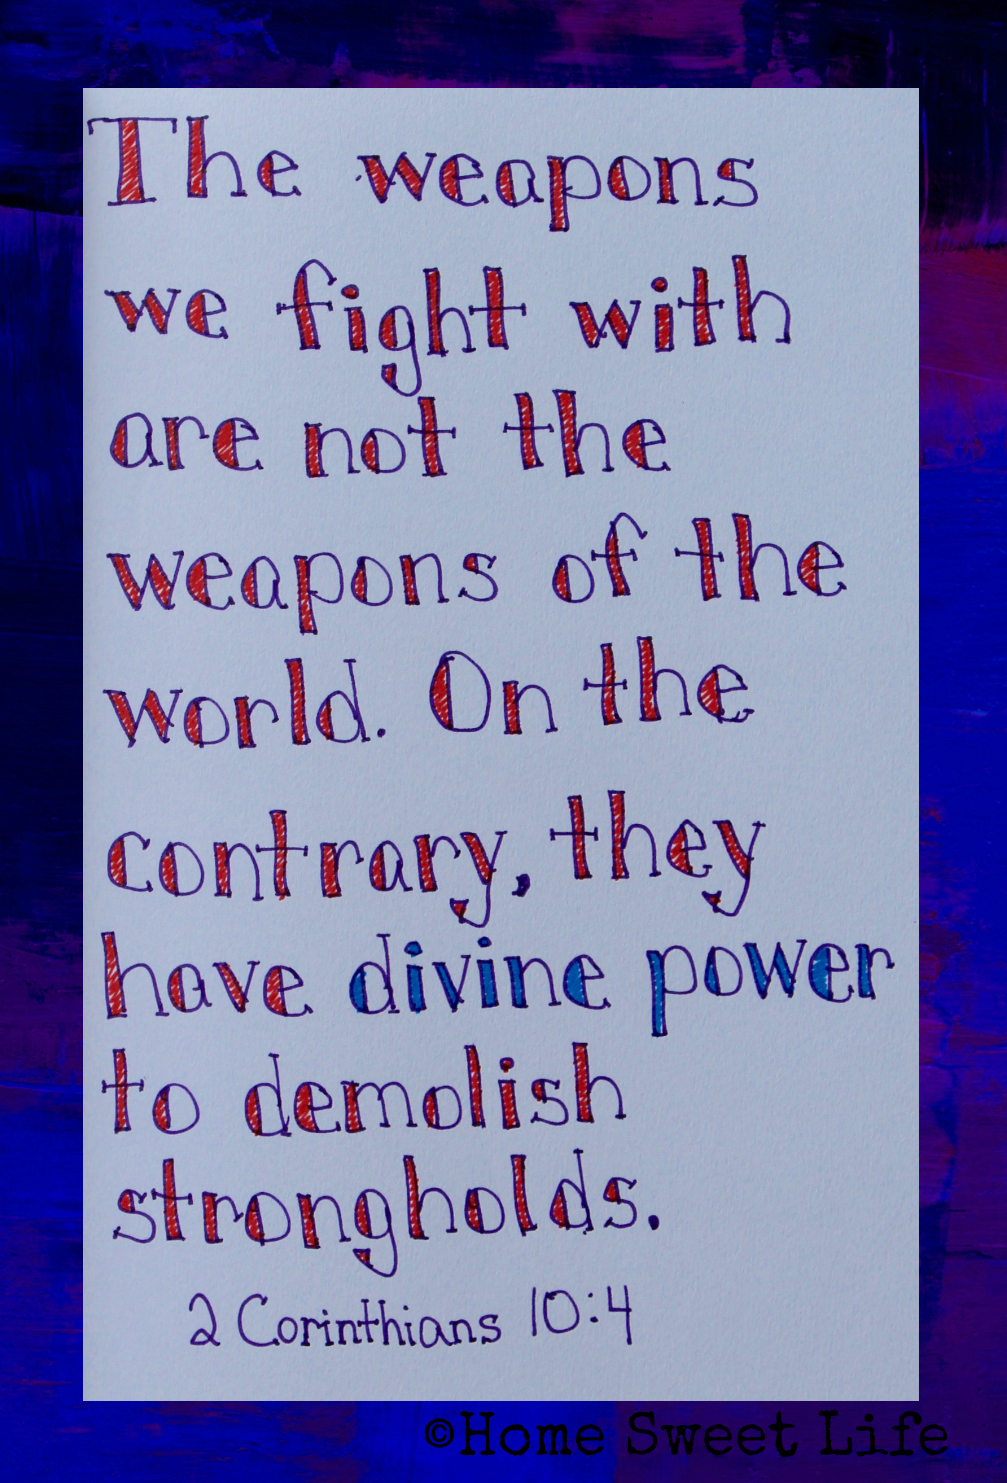 The weapons
we fight with
are not the
weapons of the
world. On the
contrary, they
have divine power
to demolish
strongholds.
2 Corinthians 10:4
©Home Sweet Life